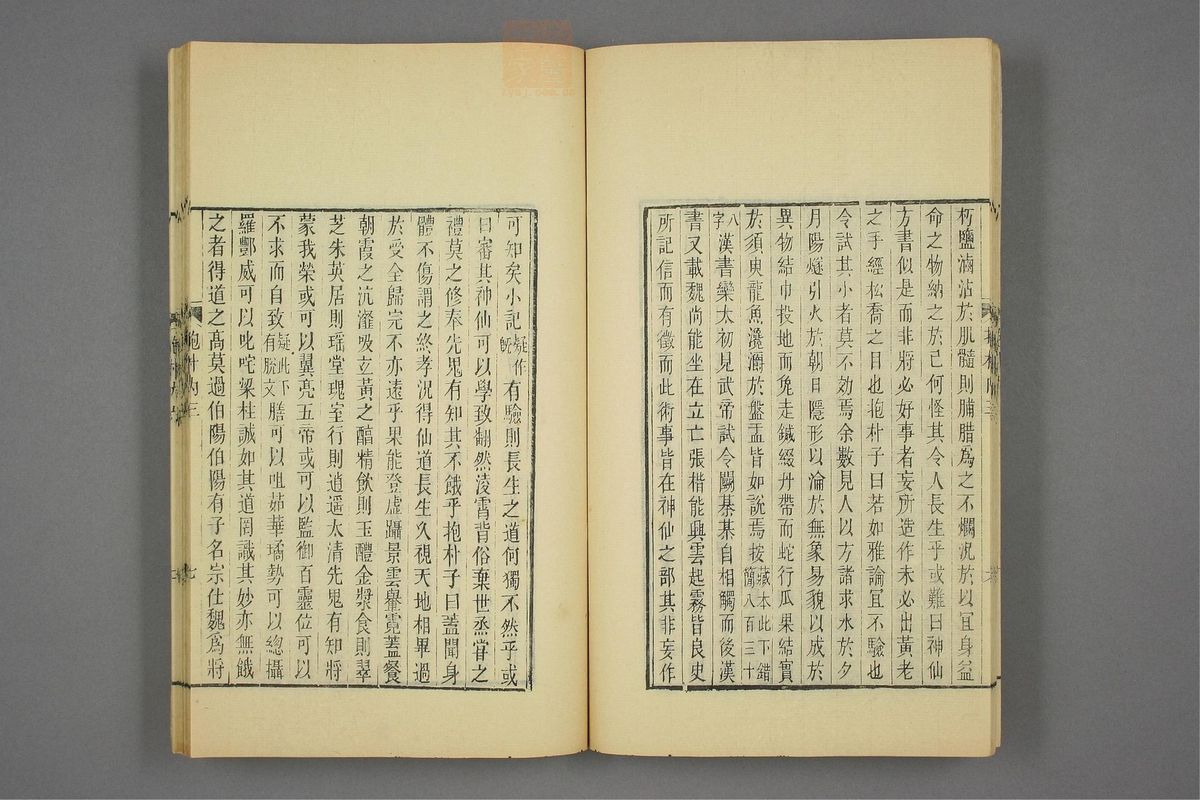 朽鹽滷沾於肌髓則脯腊爲之不爛況於以宜身益
命之物納之於己何怪其令人長生乎或難曰神仙
方書似是而非將必好事者妄所造作未必出黃老
之手經松喬之目也抱朴子曰若如雅論宜不驗也
今試其小者莫不效焉余數見人以方諸求水於夕
月陽燧引火於朝日隱形以淪於無象易貌以成於
異物結巾投地而兔走鍼綴丹帶而蛇行瓜果結實
於須臾龍魚瀺灂於盤盂皆如說焉按藏本此下錯簡八百三十
八字漢書欒太初見武帝試令鬭棊棊自相觸而後漢
書又載魏尚能坐在立亡張楷能興雲起霧皆良史
所記信而有徵而此術事皆在神仙之部其非妄作
可知矣小記疑作旣有驗則長生之道何獨不然乎或
曰審其神仙可以學致翻然凌霄背俗棄世烝嘗之
禮莫之修奉先鬼有知其不餓乎抱朴子曰蓋聞身
體不傷謂之終孝況得仙道長生久視天地相畢過
於受全歸完不亦遠乎果能登虛躡景雲轝霓蓋餐
朝霞之沆瀣吸立黃之醕精飲則玉醴金漿食則翠
芝朱英居則瑶堂瑰室行則逍遥太清先鬼有知將
蒙我榮或可以翼亮五帝或可以監御百靈位可以
不求而自致疑此下有脫文膳可以咀茹華璚勢可以總攝
羅酆威可以叱咤梁柱誠如其道罔識其妙亦無餓
之者得道之高莫過伯陽伯陽有子名宗仕魏爲將